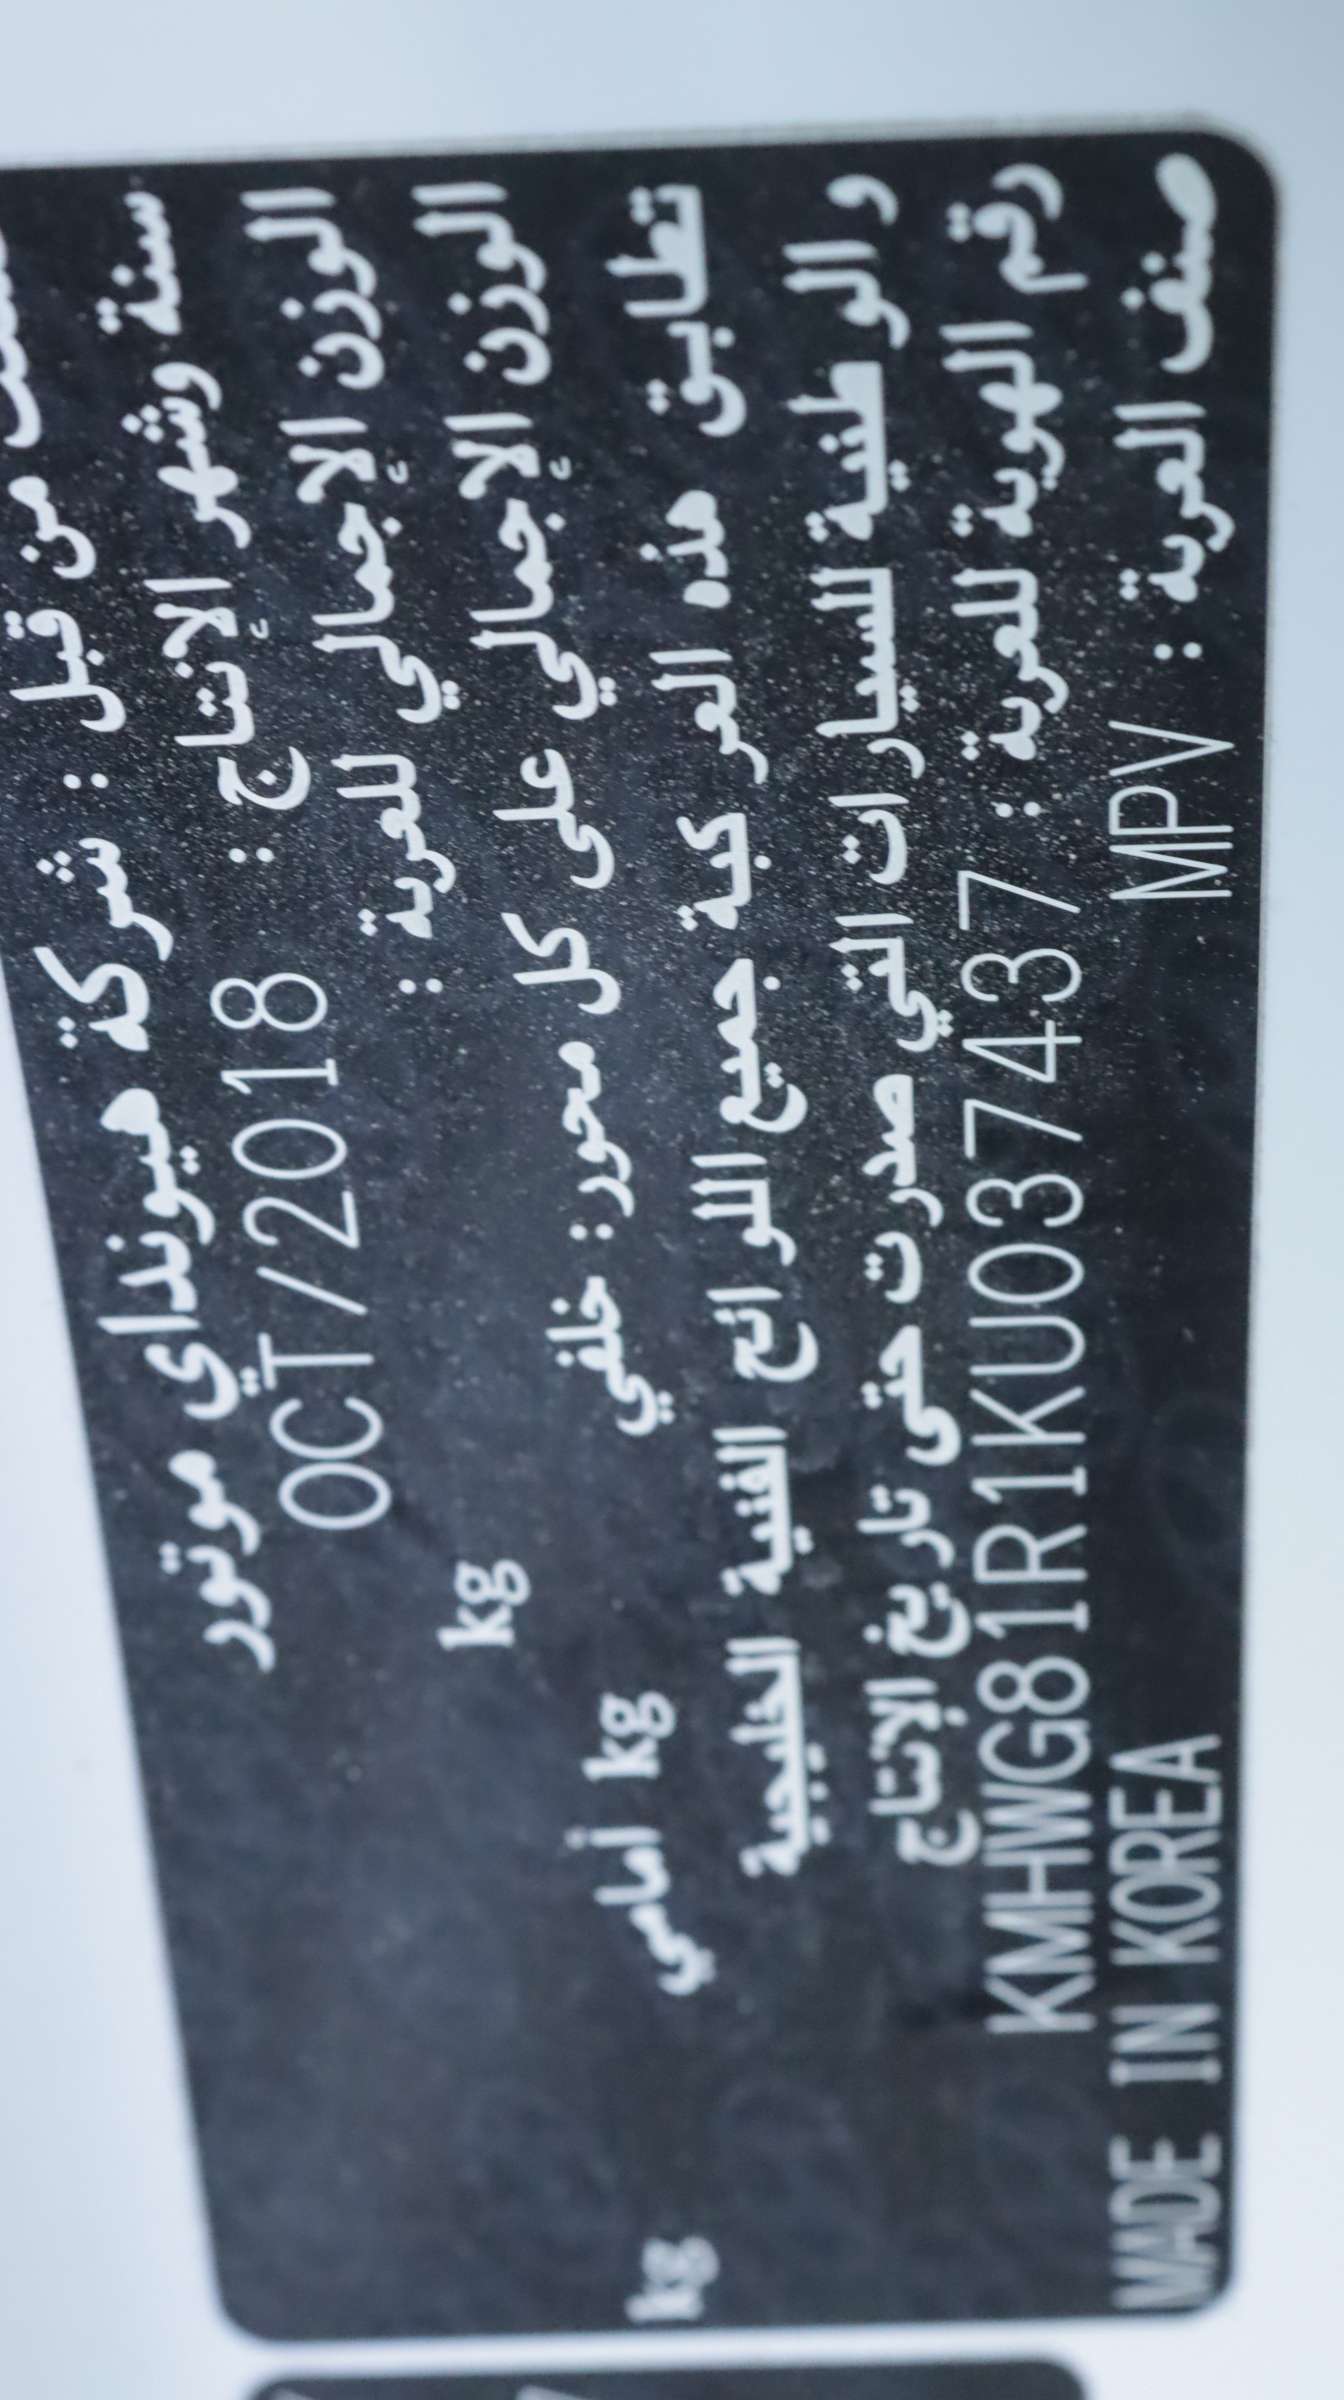 صنعت من قبل : شركة هيونداي موتور
سنة وشهر الإنتاج : OCT/2018
الوزن الإجمالي للعربة : kg
الوزن الإجمالي على كل محور : خلفي kg أمامي kg
تطابق هذه العركبة جميع اللوائح الفنية الخليجية
والوطنية للسيارات التي صدرت حتى تاريخ الإنتاج
رقم الهوية للعربة : KMHWG81R1KU037437
صنف العربة : MPV MADE IN KOREA